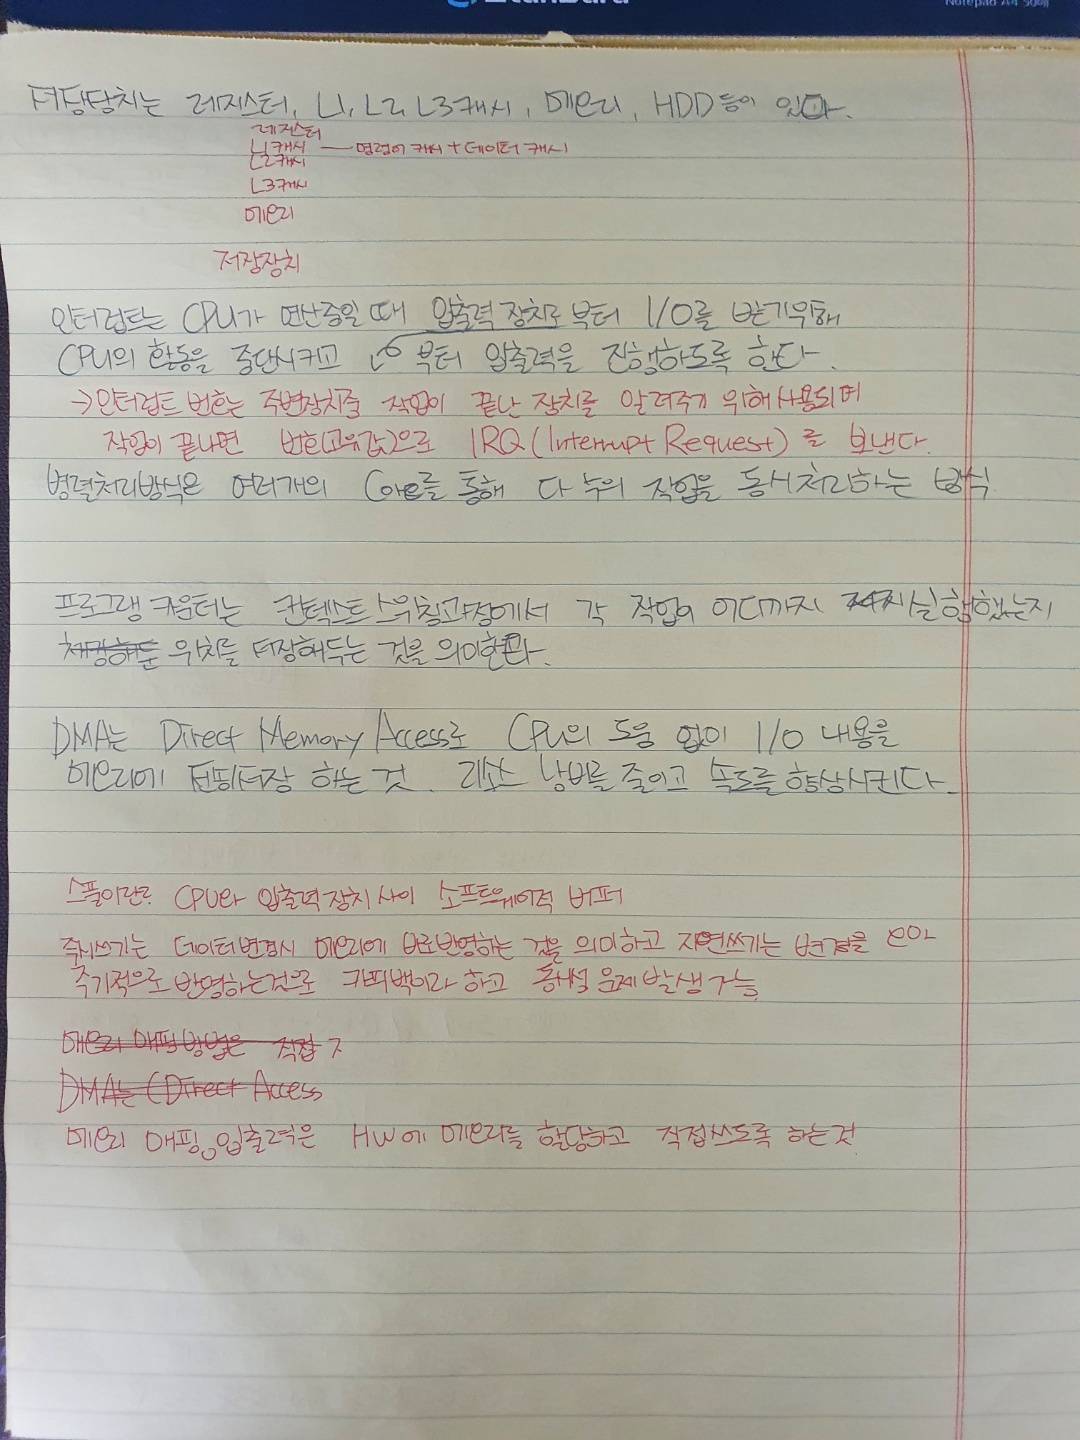 Standard
Notepad A4 50매
저장장치는 레지스터, L1, L2, L3캐시, 메모리, HDD등이 있다.
레지스터
L1캐시 — 명령어 캐시 + 데이터 캐시
L2캐시
L3캐시
메모리
저장장치
인터럽트는 CPU가 연산중일 때 입출력 장치로부터 I/O를 받기위해
CPU의 활동을 중단시키고 부터 입출력을 진행하도록 한다.
→인터럽트 번호는 주변장치중 작업이 끝난 장치를 알려주기 위해 사용되며
작업이 끝나면 번호(고유값)으로 IRQ(Interrupt Request)를 보낸다.
병렬처리방식은 여러개의 Core를 통해 다수의 작업을 동시처리하는 방식
프로그램 카운터는 컨텍스트 스위칭과정에서 각 작업이 어디까지 실행했는지
위치를 저장해두는 것을 의미한다.
DMA는 Direct Memory Access로 CPU의 도움 없이 I/O 내용을
메모리에 저장 하는 것. 리소스 낭비를 줄이고 속도를 향상시킨다.
스풀이란? CPU와 입출력장치 사이 소프트웨어적 버퍼
즉시쓰기는 데이터변경시 메모리에 바로반영하는 것을 의미하고 지연쓰기는 변경을 모아
주기적으로 반영하는것으로 카피백이라 하고 동시성 문제 발생 가능
메모리 매핑 방법은 직접
DMA는 (Direct Access
메모리 매핑 입출력은 HW에 메모리를 할당하고 직접쓰도록 하는것